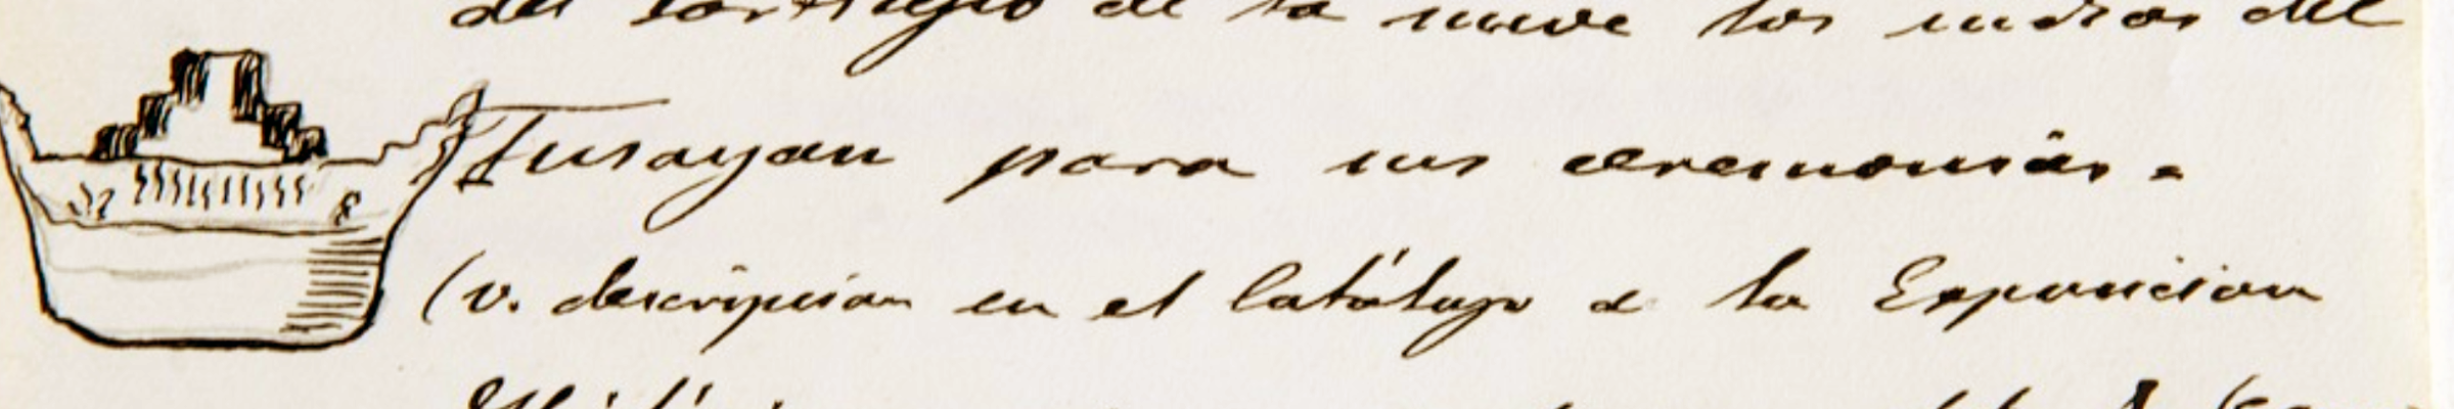 del sortilegio de la nieve los indios del
Tusayan para sus ceremonias.
(v. descripcion en el Catálogo de la Exposicion